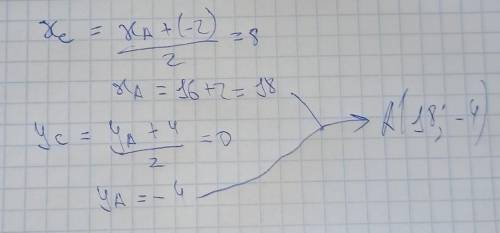 x_c = (x_A + (-2))/2 = 8
x_A = 16 + 2 = 18
y_c = (y_A + 4)/2 = 0
y_A = -4
A(18; -4)